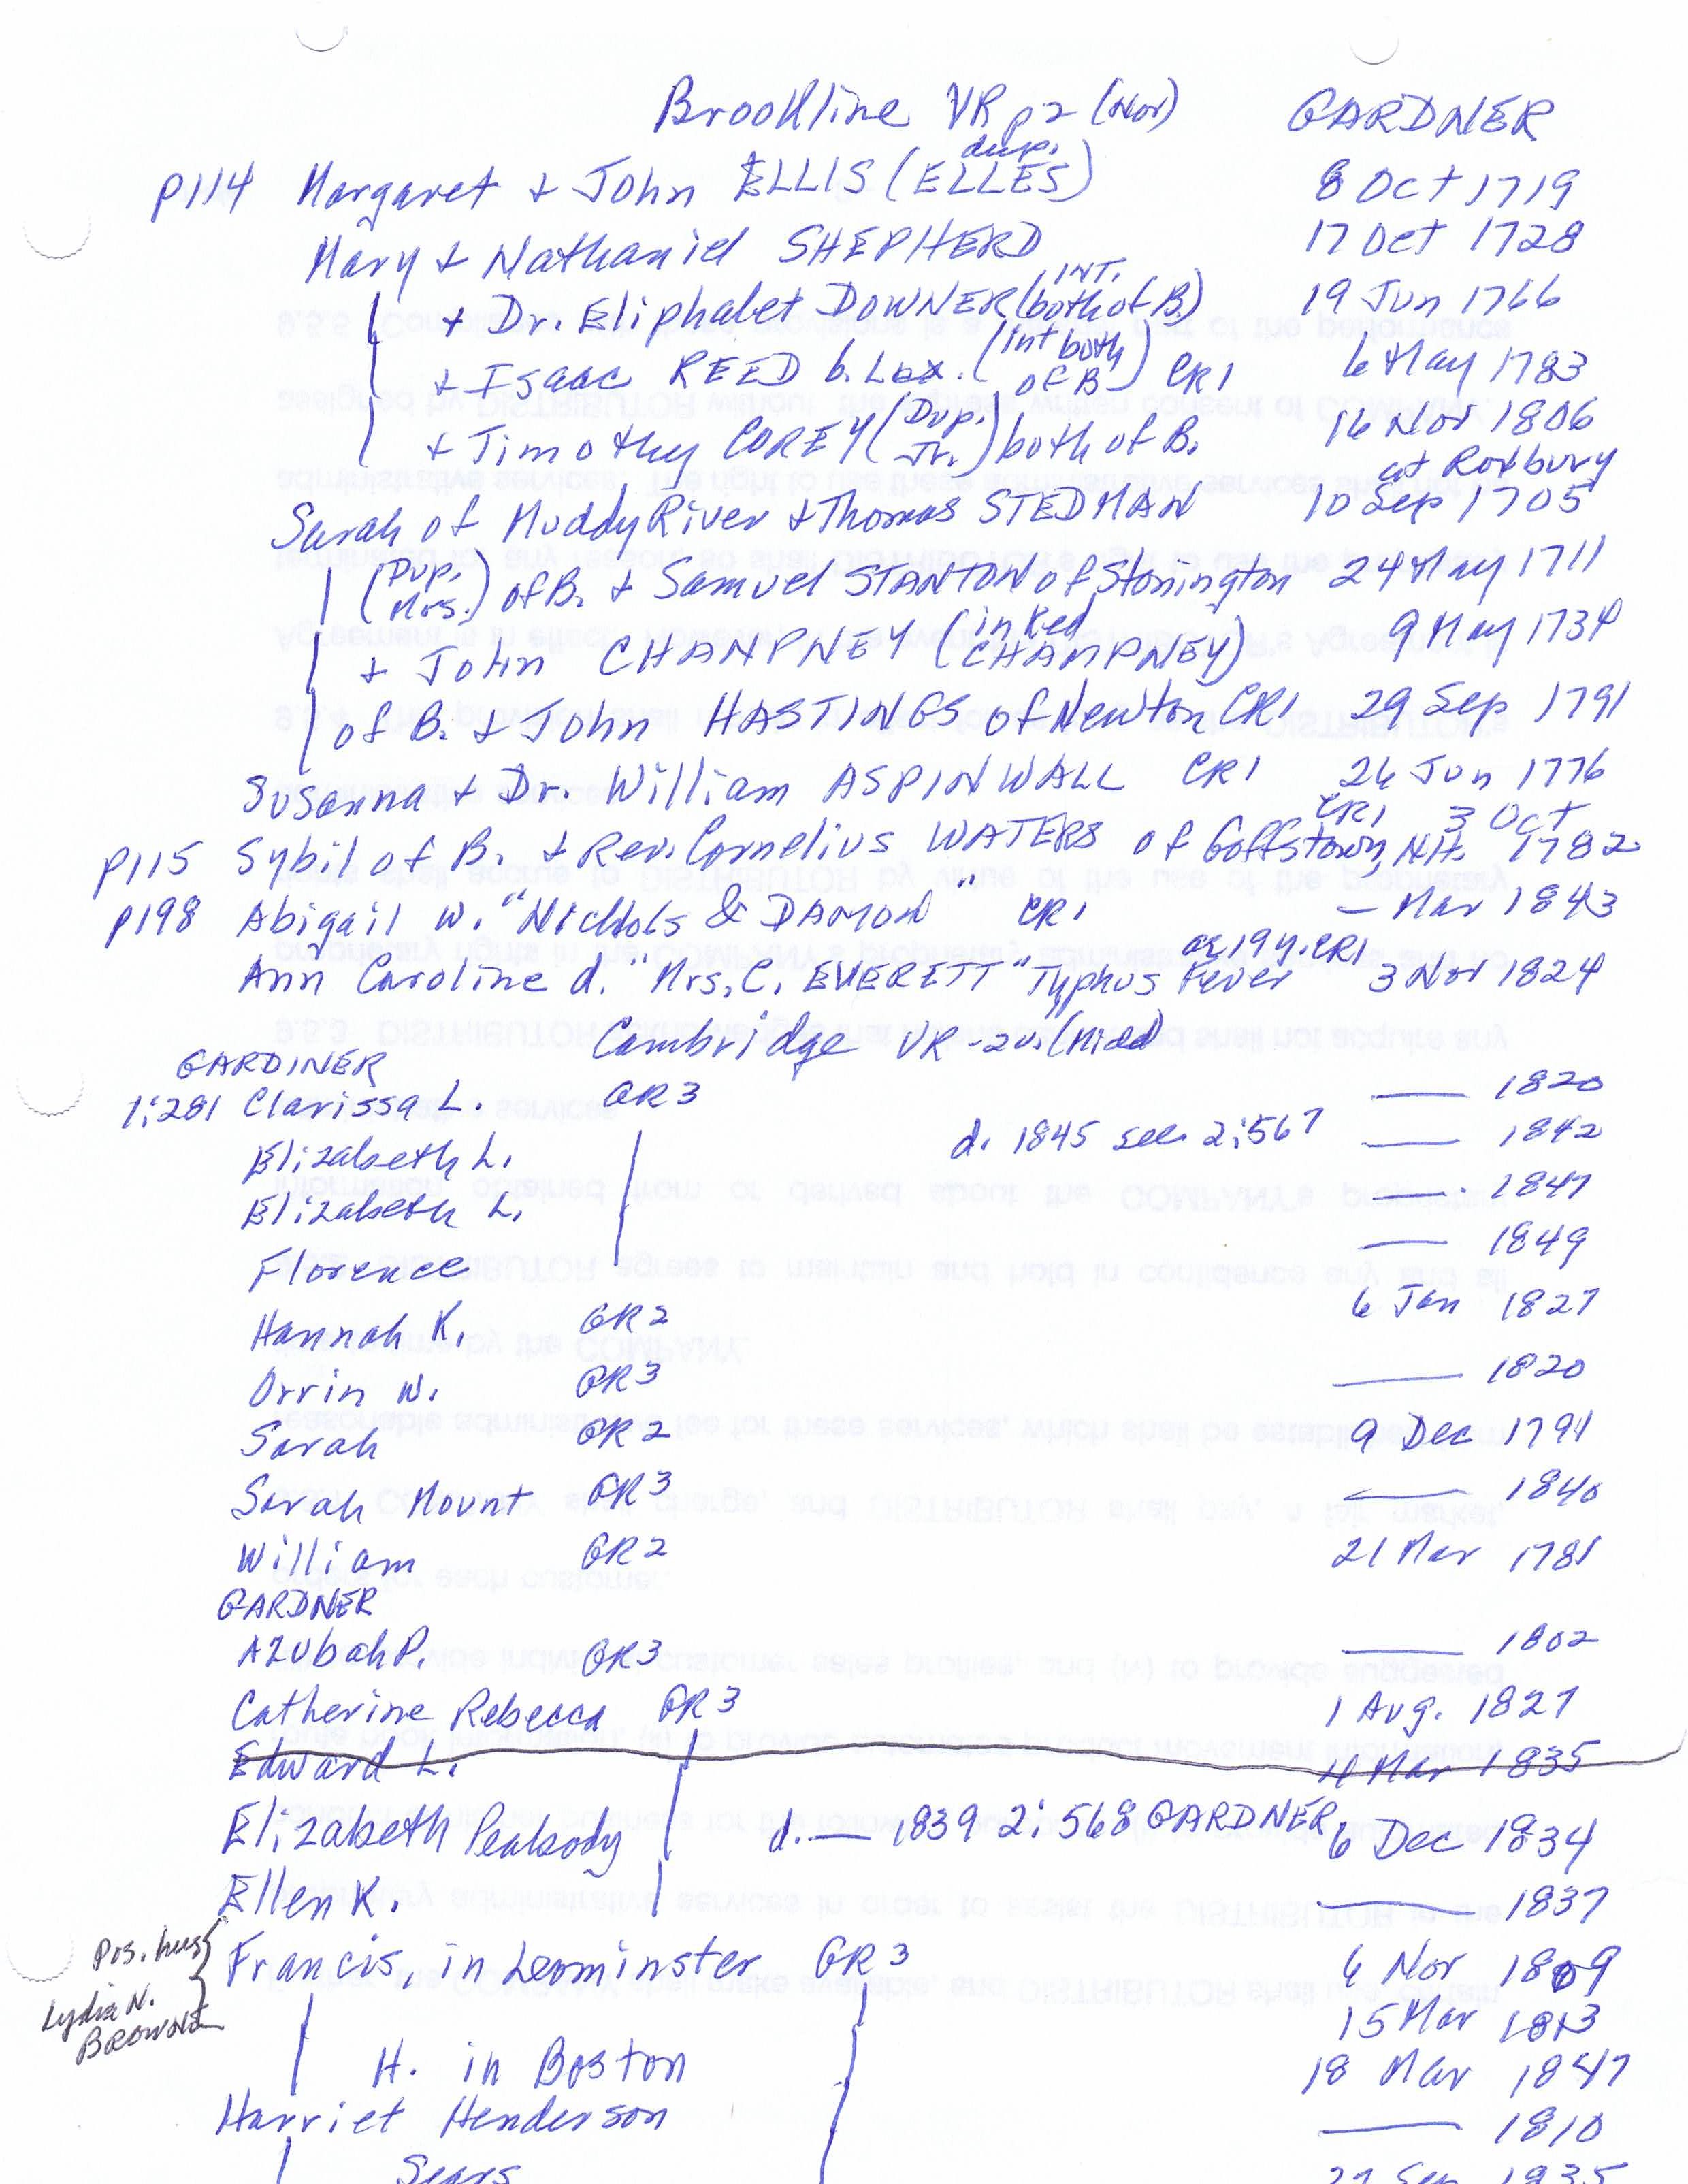 Brookline VR p2 (Nor) GARDNER
p114 Margaret + John ELLIS (dup. ELLES) 8 Oct 1719
Mary + Nathaniel SHEPHERD 17 Oct 1728
| + Dr. Eliphalet DOWNER (INT. both of B.) 19 Jun 1766
| + Isaac REED b. Lex. (int both of B) CR1 6 May 1783
| + Timothy COREY (Dup. Jr.) both of B. 16 Nov 1806
at Roxbury
Sarah of Muddy River + Thomas STEDMAN 10 Sep 1705
| (Dup. Mrs.) of B. + Samuel STANTON of Stonington 24 May 1711
| + John CHANPNEY (inked CHAMPNEY) 9 May 1734
| of B. + John HASTINGS of Newton CR1 29 Sep 1791
Susanna + Dr. William ASPINWALL CR1 26 Jun 1776
CR1 3 Oct
p115 Sybil of B. + Rev. Cornelius WATERS of Goffstown, NH. 1782
p198 Abigail W. "Nichols & DAMON" CR1 — Mar 1843
ae 19 y. CR1
Ann Caroline d. "Mrs. C. EVERETT" Typhus Fever" 3 Nov 1824
Cambridge VR - 2v. (Midd)
GARDINER
1:281 Clarissa L. GR3 — 1820
Elizabeth L. | d. 1845 see 2:567 — 1842
Elizabeth L. | — 1847
Florence | — 1849
Hannah K. GR2 6 Jan 1827
Orrin W. GR3 — 1820
Sarah GR2 9 Dec 1791
Sarah Mount GR3 — 1840
William GR2 21 Mar 1781
GARDNER
Azubah P. GR3 — 1802
Catherine Rebecca GR3 1 Aug. 1827
Edward L. | 4 Mar 1835
Elizabeth Peabody | d. — 1839 2:568 GARDNER 6 Dec 1834
Ellen K. | — 1837
Pos. hus Francis, in Leominster GR3 6 Nov 1809
Lydia N. BROWNE | | 15 Mar 1813
| H. in Boston | 18 Mar 1847
Harriet Henderson | — 1810
| Sears | 27 Sep 1835